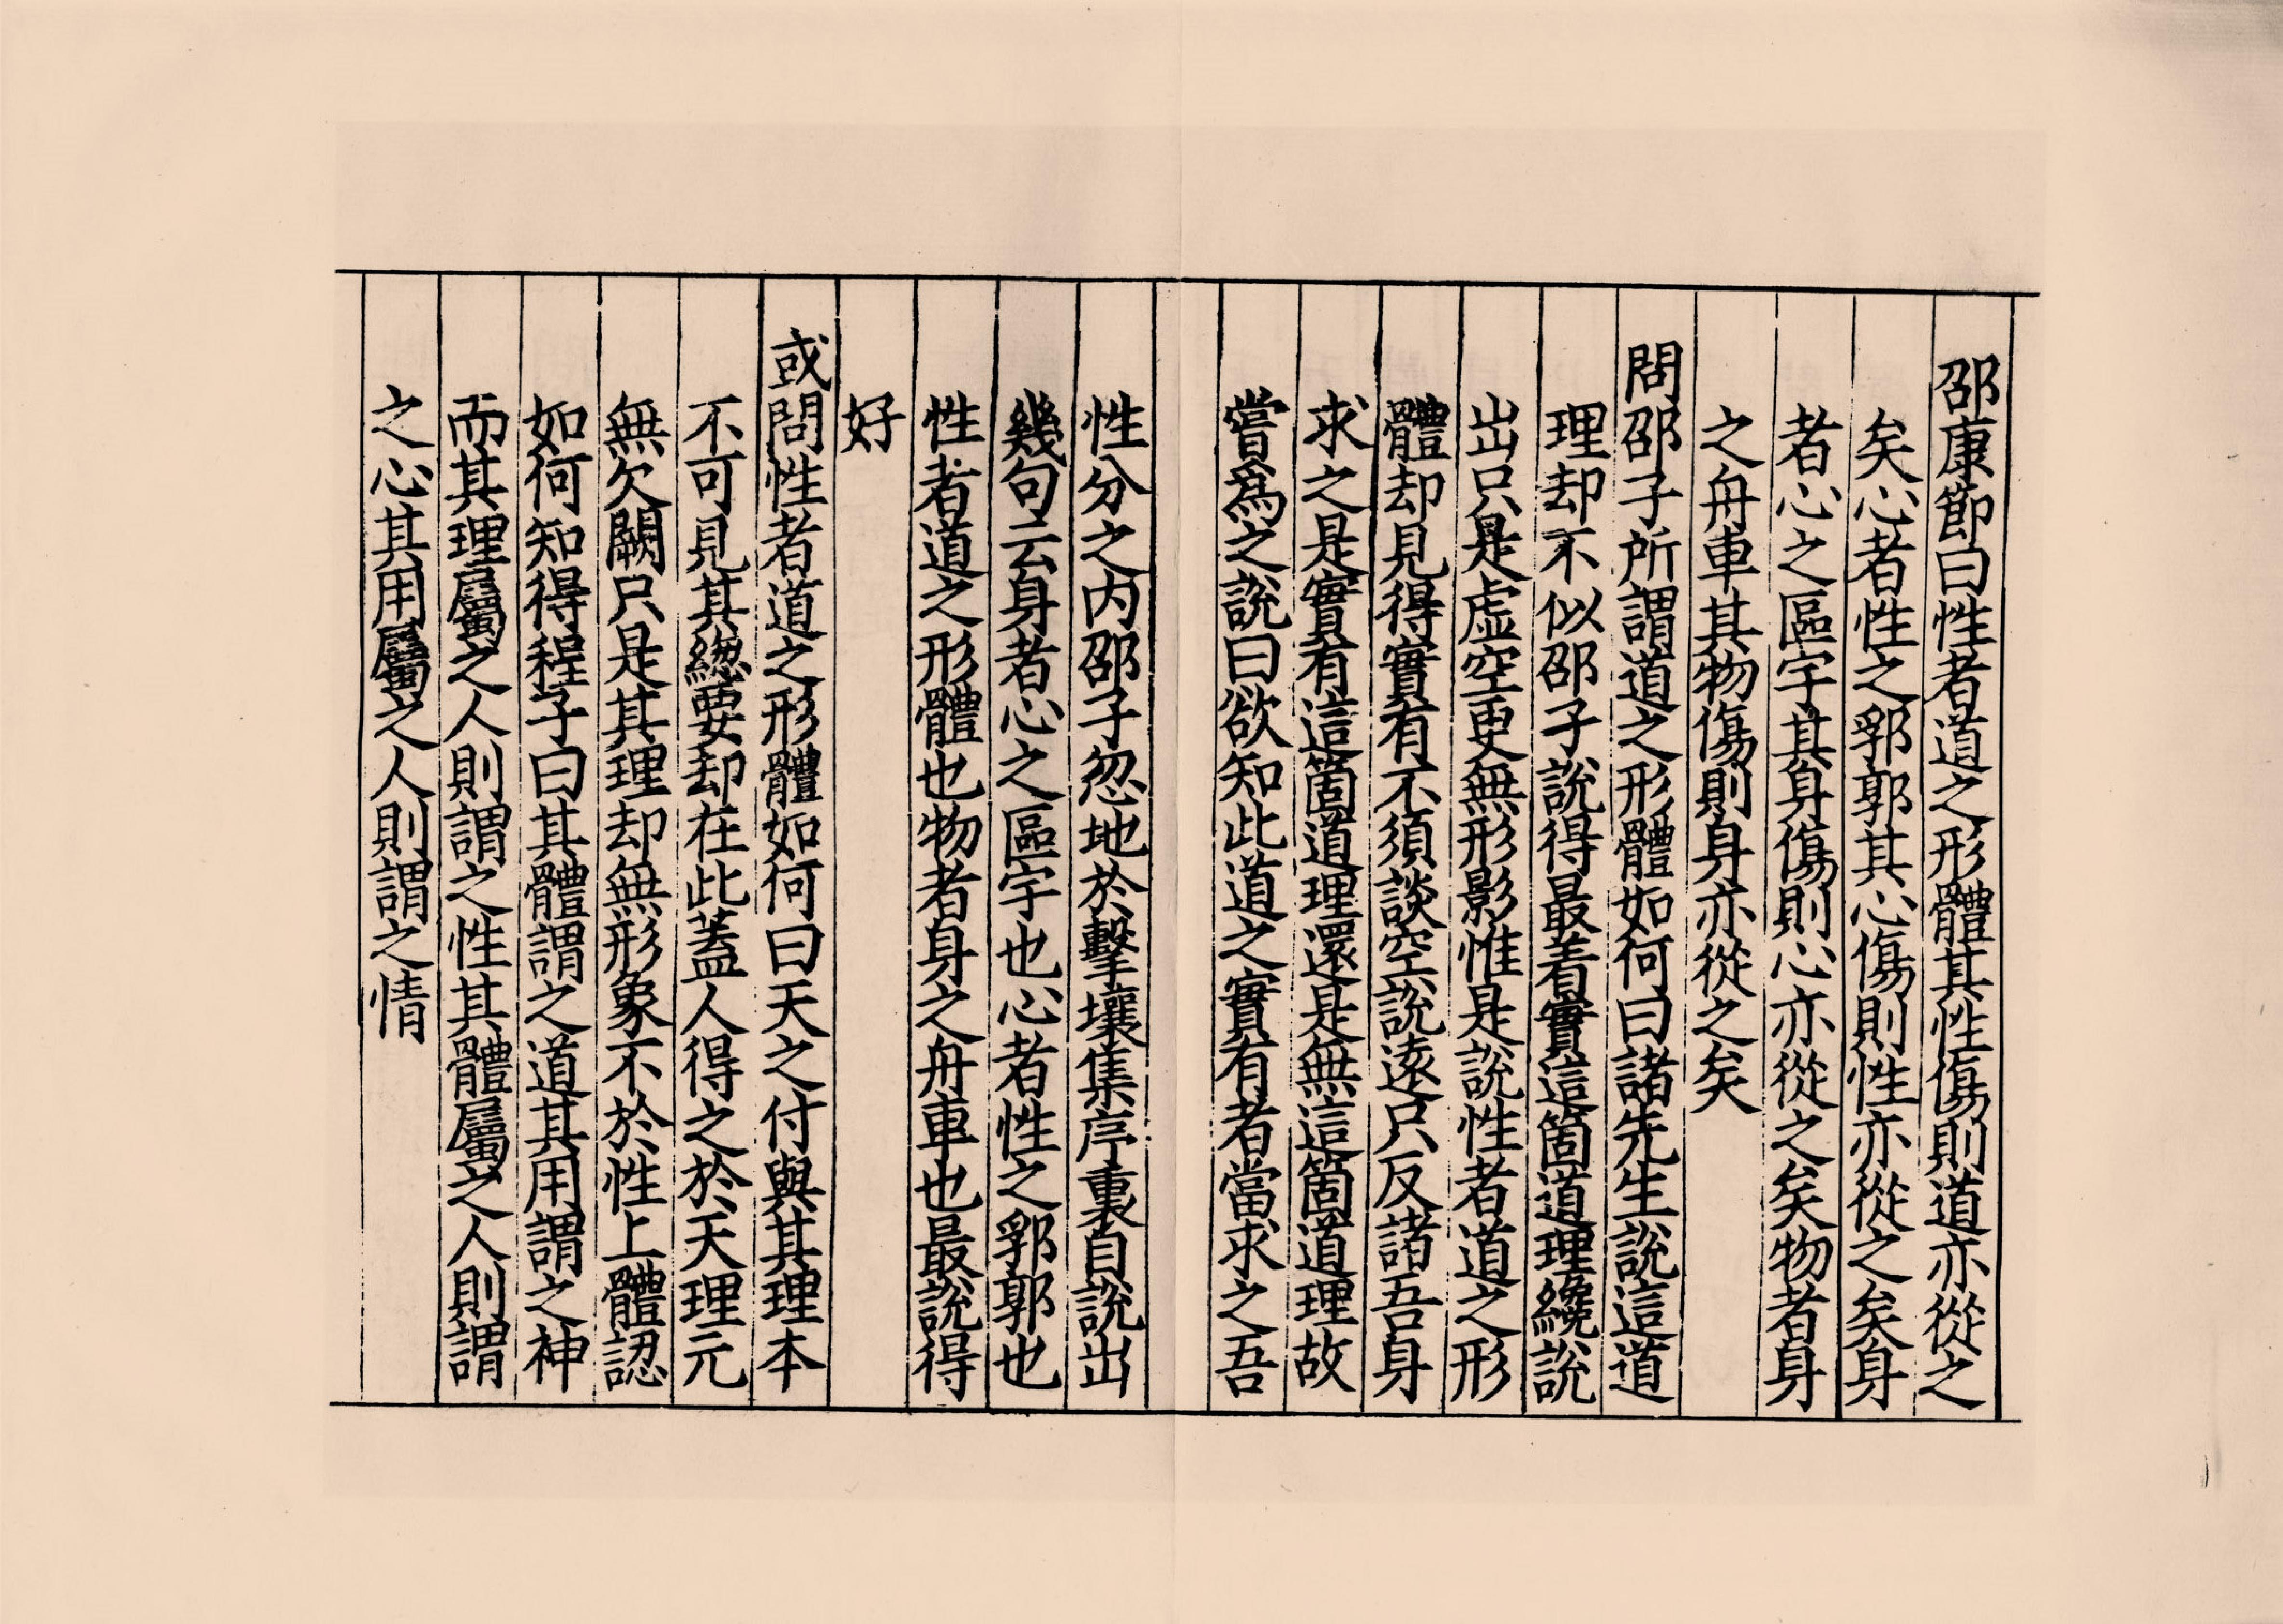 邵康節曰性者道之形體其性傷則道亦從之
矣心者性之郛郭其心傷則性亦從之矣身
者心之區宇其身傷則心亦從之矣物者身
之舟車其物傷則身亦從之矣
問邵子所謂道之形體如何曰諸先生說這道
理却不似邵子說得最着實這箇道理纔說
出只是虛空更無形影惟是說性者道之形
體却見得實有不須談空說遠只反諸吾身
求之是實有這箇道理還是無這箇道理故
嘗爲之說曰欲知此道之實有者當求之吾
性分之内邵子忽地於擊壤集序裏自說出
幾句云身者心之區宇也心者性之郛郭也
性者道之形體也物者身之舟車也最說得
好
或問性者道之形體如何曰天之付與其理本
不可見其緫要却在此蓋人得之於天理元
無欠闕只是其理却無形象不於性上體認
如何知得程子曰其體謂之道其用謂之神
而其理屬之人則謂之性其體屬之人則謂
之心其用屬之人則謂之情